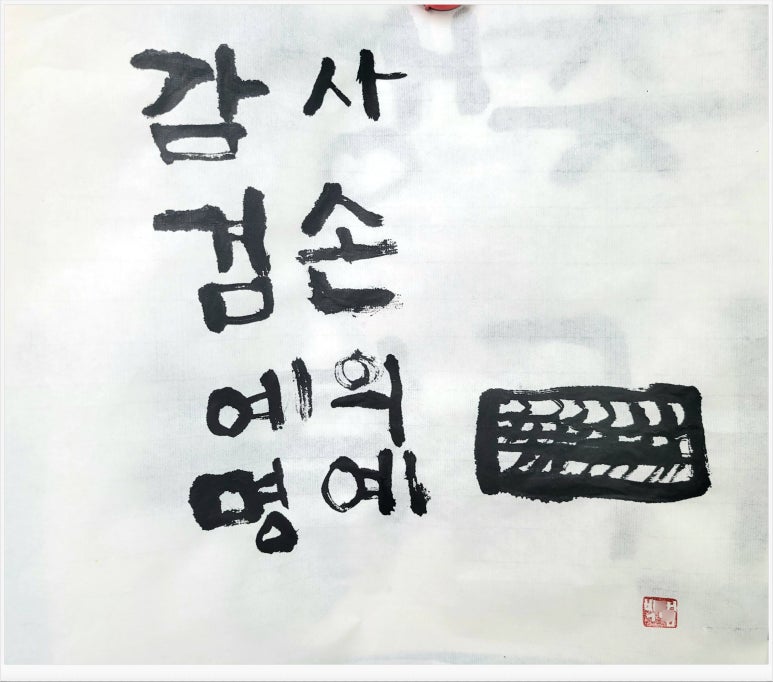 감사
겸손
예의
명예